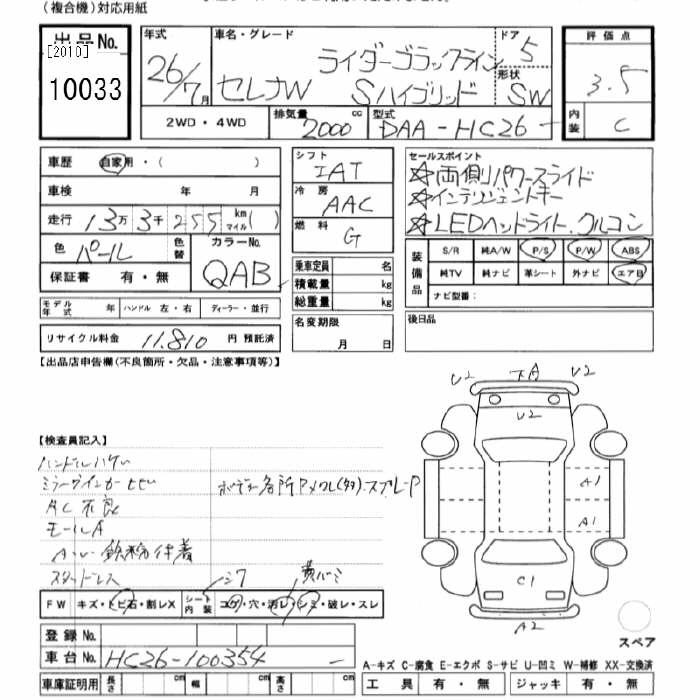 (複合機)対応用紙
出品No.
[2010]
10033
年式
26/7月
車名・グレード
ライダーブラックライン
セレナW Sハイブリッド
ドア
5
形状
SW
評価点
3.5
内装
C
2WD・4WD
排気量
2000 cc
型式
DAA-HC26-
車歴 自家用・( )
車検 年 月
走行 13万3千255 km マイル( )
色 パール
色替
カラーNo.
QAB
保証書 有・無
モデル年式 年 ハンドル 左・右 ディーラー・並行
リサイクル料金 11.810 円 預託済
シフト
IAT
冷房
AAC
燃料
G
乗車定員 名
積載量 kg
総重量 kg
名変期限
月 日
セールスポイント
☆両側パワースライド
☆インテリジェントキー
☆LEDヘッドライト.クルコン
装備品
S/R 純A/W P/S P/W ABS
純TV 純ナビ 革シート 外ナビ エアB
ナビ型番:
後日品
【出品店申告欄(不良箇所・欠品・注意事項等)】
【検査員記入】
ハンドルハゲ
ミラーウインカーヒビ
AC不良
モールA
鉄粉付着
スタッドレス
ボデー各所
スプレーP
U2 下A U2
U2
A1
A1
C1
A2
スペア
FW キズ・トビ石・割レX
シート内装 コゲ・穴・汚レ・シミ・破レ・スレ
登録No.
車台No. HC26-100354 -
車庫証明用 長さ cm 幅 cm 高さ cm
A-キズ C-腐食 E-エクボ S-サビ U-凹ミ W-補修 XX-交換済
工具 有・無 ジャッキ 有・無